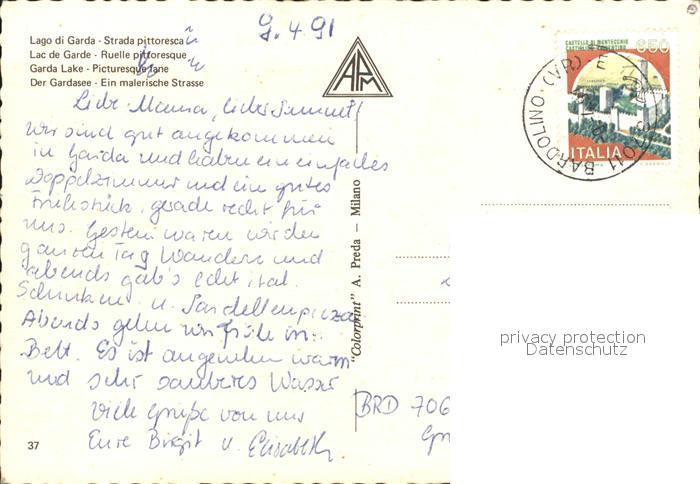 9.4.91
Lago di Garda - Strada pittoresca
Lac de Garde - Ruelle pittoresque
Garda Lake - Picturesque lane
Der Gardasee - Ein malerische Strasse
APM
CASTELLO DI MONTECCHIO
CASTIGLION FIORENTINO
650
ITALIA
BARDOLINO (VR)
Liebe Mama, lieber
wir sind gut angekommen
in Garda und haben ein einfaches
Doppelzimmer und ein gutes
Frühstück, gerade recht für
uns. Gestern waren wir den
ganzen Tag Wandern und
abends gab's echt ital.
Schinken u. Sardellenpizza.
Abends gehen wir früh in's
Bett. Es ist angenehm warm
und sehr sauberes Wasser
Viele Grüße von uns
Eure Birgit u. Elisabeth
"Colorprint" A. Preda — Milano
BRD 706
37
privacy protection
Datenschutz